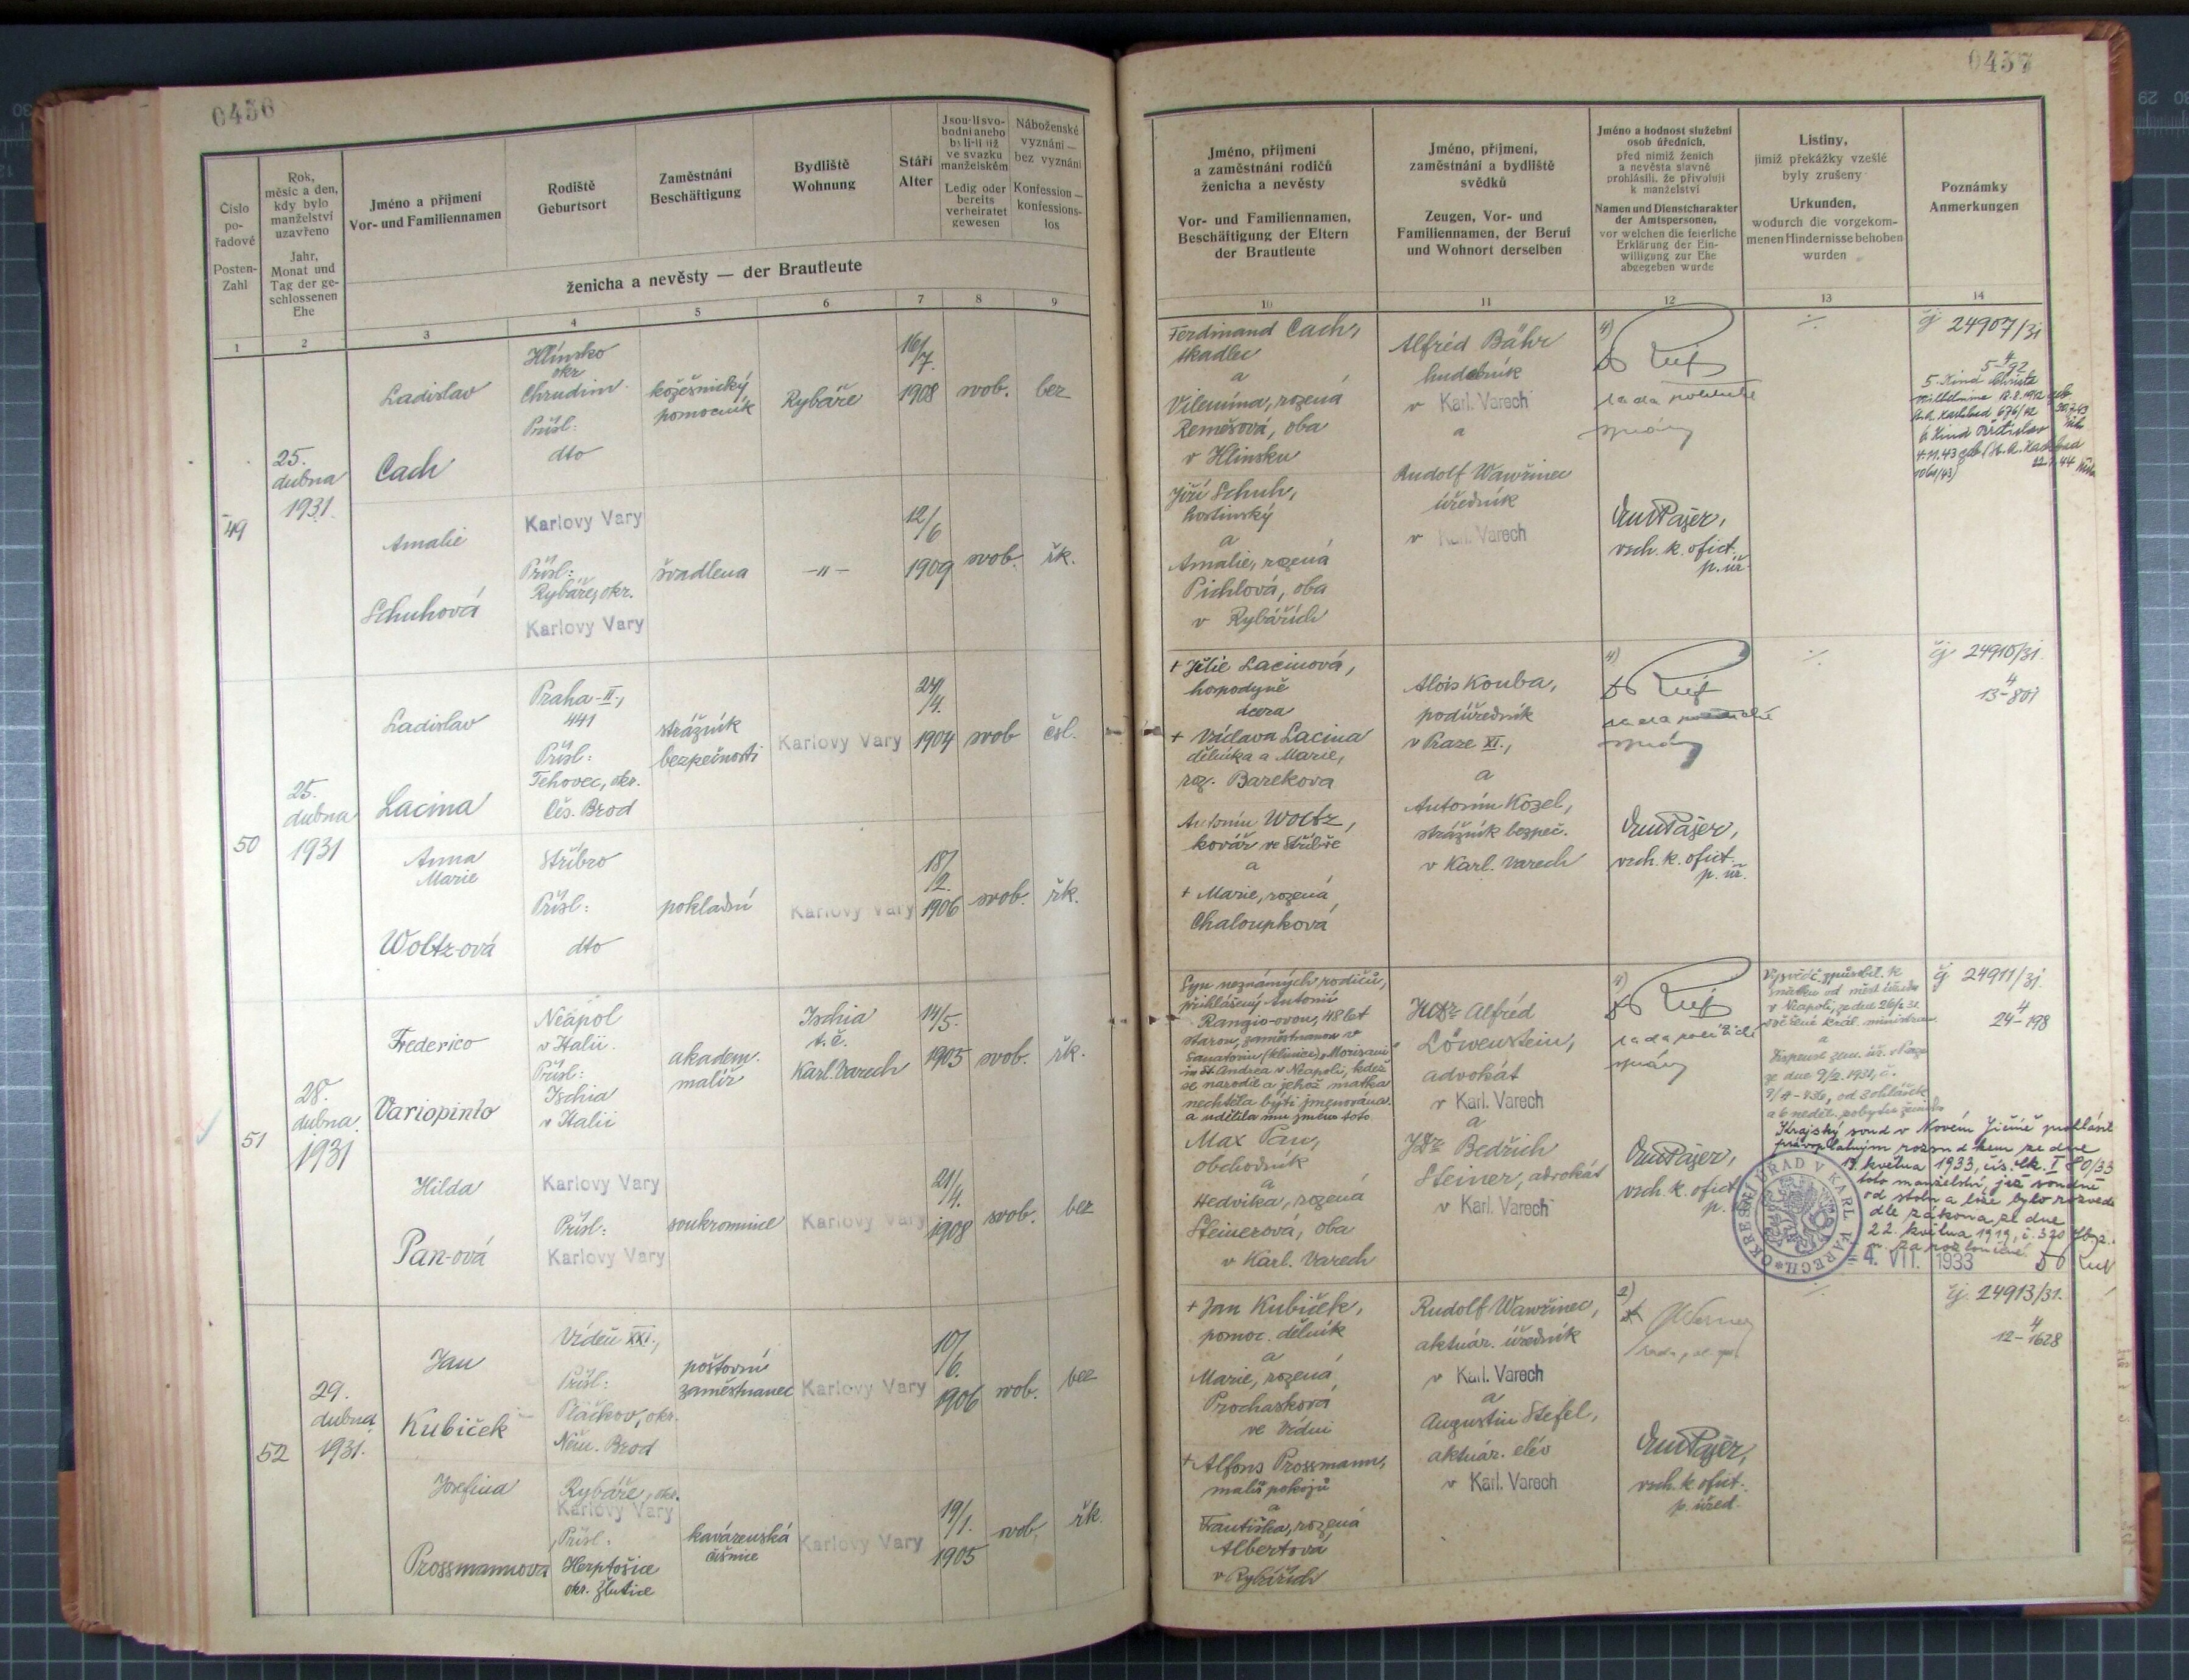 0436
Číslo
po-
řadové
Posten-
Zahl
Rok,
měsíc a den,
kdy bylo
manželství
uzavřeno
Jahr,
Monat und
Tag der ge-
schlossenen
Ehe
Jméno a příjmení
Vor- und Familiennamen
Rodiště
Geburtsort
Zaměstnání
Beschäftigung
Bydliště
Wohnung
Stáří
Alter
Jsou-li svo-
bodni anebo
byli-li již
ve svazku
manželském
Ledig oder
bereits
verheiratet
gewesen
Náboženské
vyznání —
bez vyznání
Konfession —
konfessions-
los
ženicha a nevěsty — der Brautleute
1 2 3 4 5 6 7 8 9
49
25.
dubna
1931.
Ladislav
Cach
Hlinsko
okr
Chrudim
Přísl:
dto
kožešnický
pomocník
Rybáře
16/7.
1908
svob.
bez
Amalie
Schuhová
Karlovy Vary
Přísl:
Rybáře, okr.
Karlovy Vary
švadlena
—"—
12/6
1909
svob.
řk.
50
25.
dubna
1931
Ladislav
Lacina
Praha-II.,
441
Přísl:
Tehovec, okr.
Čes. Brod
strážník
bezpečnosti
Karlovy Vary
24/4.
1904
svob
čsl.
Anna
Marie
Woltz-ová
Stříbro
Přísl:
dto
pokladní
Karlovy Vary
18/2.
1906
svob.
řk.
51
28.
dubna
1931
Frederico
Variopinto
Neapol
v Italii.
Přísl:
Ischia
v Italii
akadem.
malíř
Ischia
t. č.
Karl. Varech
14/5.
1905
svob.
řk.
Hilda
Pan-ová
Karlovy Vary
Přísl:
Karlovy Vary
soukromnice
Karlovy Vary
21/4.
1908
svob.
bez
52
29.
dubna
1931.
Jan
Kubiček
Vídeň XXI.,
Přísl:
Ptáčkov, okr.
Něm. Brod
poštovní
zaměstnanec
Karlovy Vary
10/6.
1906
svob.
bez
Josefina
Prossmannova
Rybáře, okr.
Karlovy Vary
Přísl:
Herptošice
okr. Žlutice
kavárenská
číšnice
Karlovy Vary
19/1.
1905
svob.
řk.
0437
Jméno, příjmení
a zaměstnání rodičů
ženicha a nevěsty
Vor- und Familiennamen,
Beschäftigung der Eltern
der Brautleute
Jméno, příjmení,
zaměstnání a bydliště
svědků
Zeugen, Vor- und
Familiennamen, der Beruf
und Wohnort derselben
Jméno a hodnost služební
osob úředních,
před nimiž ženich
a nevěsta slavně
prohlásili, že přivolují
k manželství
Namen und Dienstcharakter
der Amtspersonen,
vor welchen die feierliche
Erklärung der Ein-
willigung zur Ehe
abgegeben wurde
Listiny,
jimiž překážky vzešlé
byly zrušeny
Urkunden,
wodurch die vorgekom-
menen Hindernisse behoben
wurden
Poznámky
Anmerkungen
10 11 12 13 14
Ferdinand Cach,
tkadlec
a
Vilemína, rozená
Remešová, oba
v Hlinsku
Jiří Schuh,
hostinský
a
Amalie, rozená
Pichlová, oba
v Rybářích
Alfréd Bähr
hudebník
v Karl. Varech
a
Rudolf Wawřinec
úředník
v Karl. Varech
4)
rada politické
správy
Pajer,
vrch. k. ofict.
p. úř.
./.
čj 24907/31
5-4/92
5. Kind Christa
Wilhelmine 18.8.1942 geb
St.A. Karlsbad 676/42
6. Kind Břetislav
4.11.43 geb. (St. A. Karlsbad
1061/43)
+ Julie Lacinová,
hospodyně
dcera
+ Václava Lacina
dělníka a Marie,
roz. Barekova
Antonín Woltz,
kovář ve Stříbře
a
+ Marie, rozená
Chaloupková
Alois Kouba,
podúředník
v Praze XI.,
a
Antonín Kozel,
strážník bezpeč.
v Karl. Varech
4)
rada politické
správy
Pajer,
vrch. k. ofict.
p. úř.
./.
čj 24910/31.
13-4/801
Syn neznámých rodičů,
přihlášený Antonií
Rangio-ovou, 48 let
starou, zaměstnanou v
Sanatoriu (klinice) „Morisani"
in St. Andrea v Neapoli, kdež
se narodil a jehož matka
nechtěla býti jmenována
a udělila mu jméno toto
Max Pan,
obchodník
a
Hedvika, rozená
Steinerová, oba
v Karl. Varech
JUDr Alfréd
Löwenstein,
advokát
v Karl. Varech
a
JUDr Bedřich
Steiner, advokát
v Karl. Varech
4)
rada politické
správy
Pajer,
vrch. k. ofict.
Vysvěd. způsobil. k
sňatku od měst. úřadu
v Neapoli, ze dne
ověřené král. ministrem
a
Dispense zem. úř. v Praze
ze dne 9/2. 1931, č.
od 3 ohlášek
a 6 neděl. pobytu ženicha
čj 24911/31.
24-4/198
Krajský soud v Novém Jičíně prohlásil
pravoplatným rozsudkem ze dne
května 1933, čís. Ck. I 80/33
toto manželství, jež soudně
od stolu a lože bylo rozvede
dle zákona ze dne
22. května 1919, č. 320 Sb. z.
n. za rozloučené.
OKRESNÍ ÚŘAD V KARL. VARECH
4. VII. 1933
+ Jan Kubiček,
pomoc. dělník
a
Marie, rozená
Prochasková
ve Vídni
+ Alfons Prossmann,
malíř pokojů
a
Františka, rozená
Albertová
v Rybářích
Rudolf Wawřinec,
aktuár. úředník
v Karl. Varech
a
Augustin Stefel,
aktuár. elév
v Karl. Varech
2)
Pajer,
vrch. k. ofict.
p. úřed.
./.
čj. 24913/31.
12-4/1628